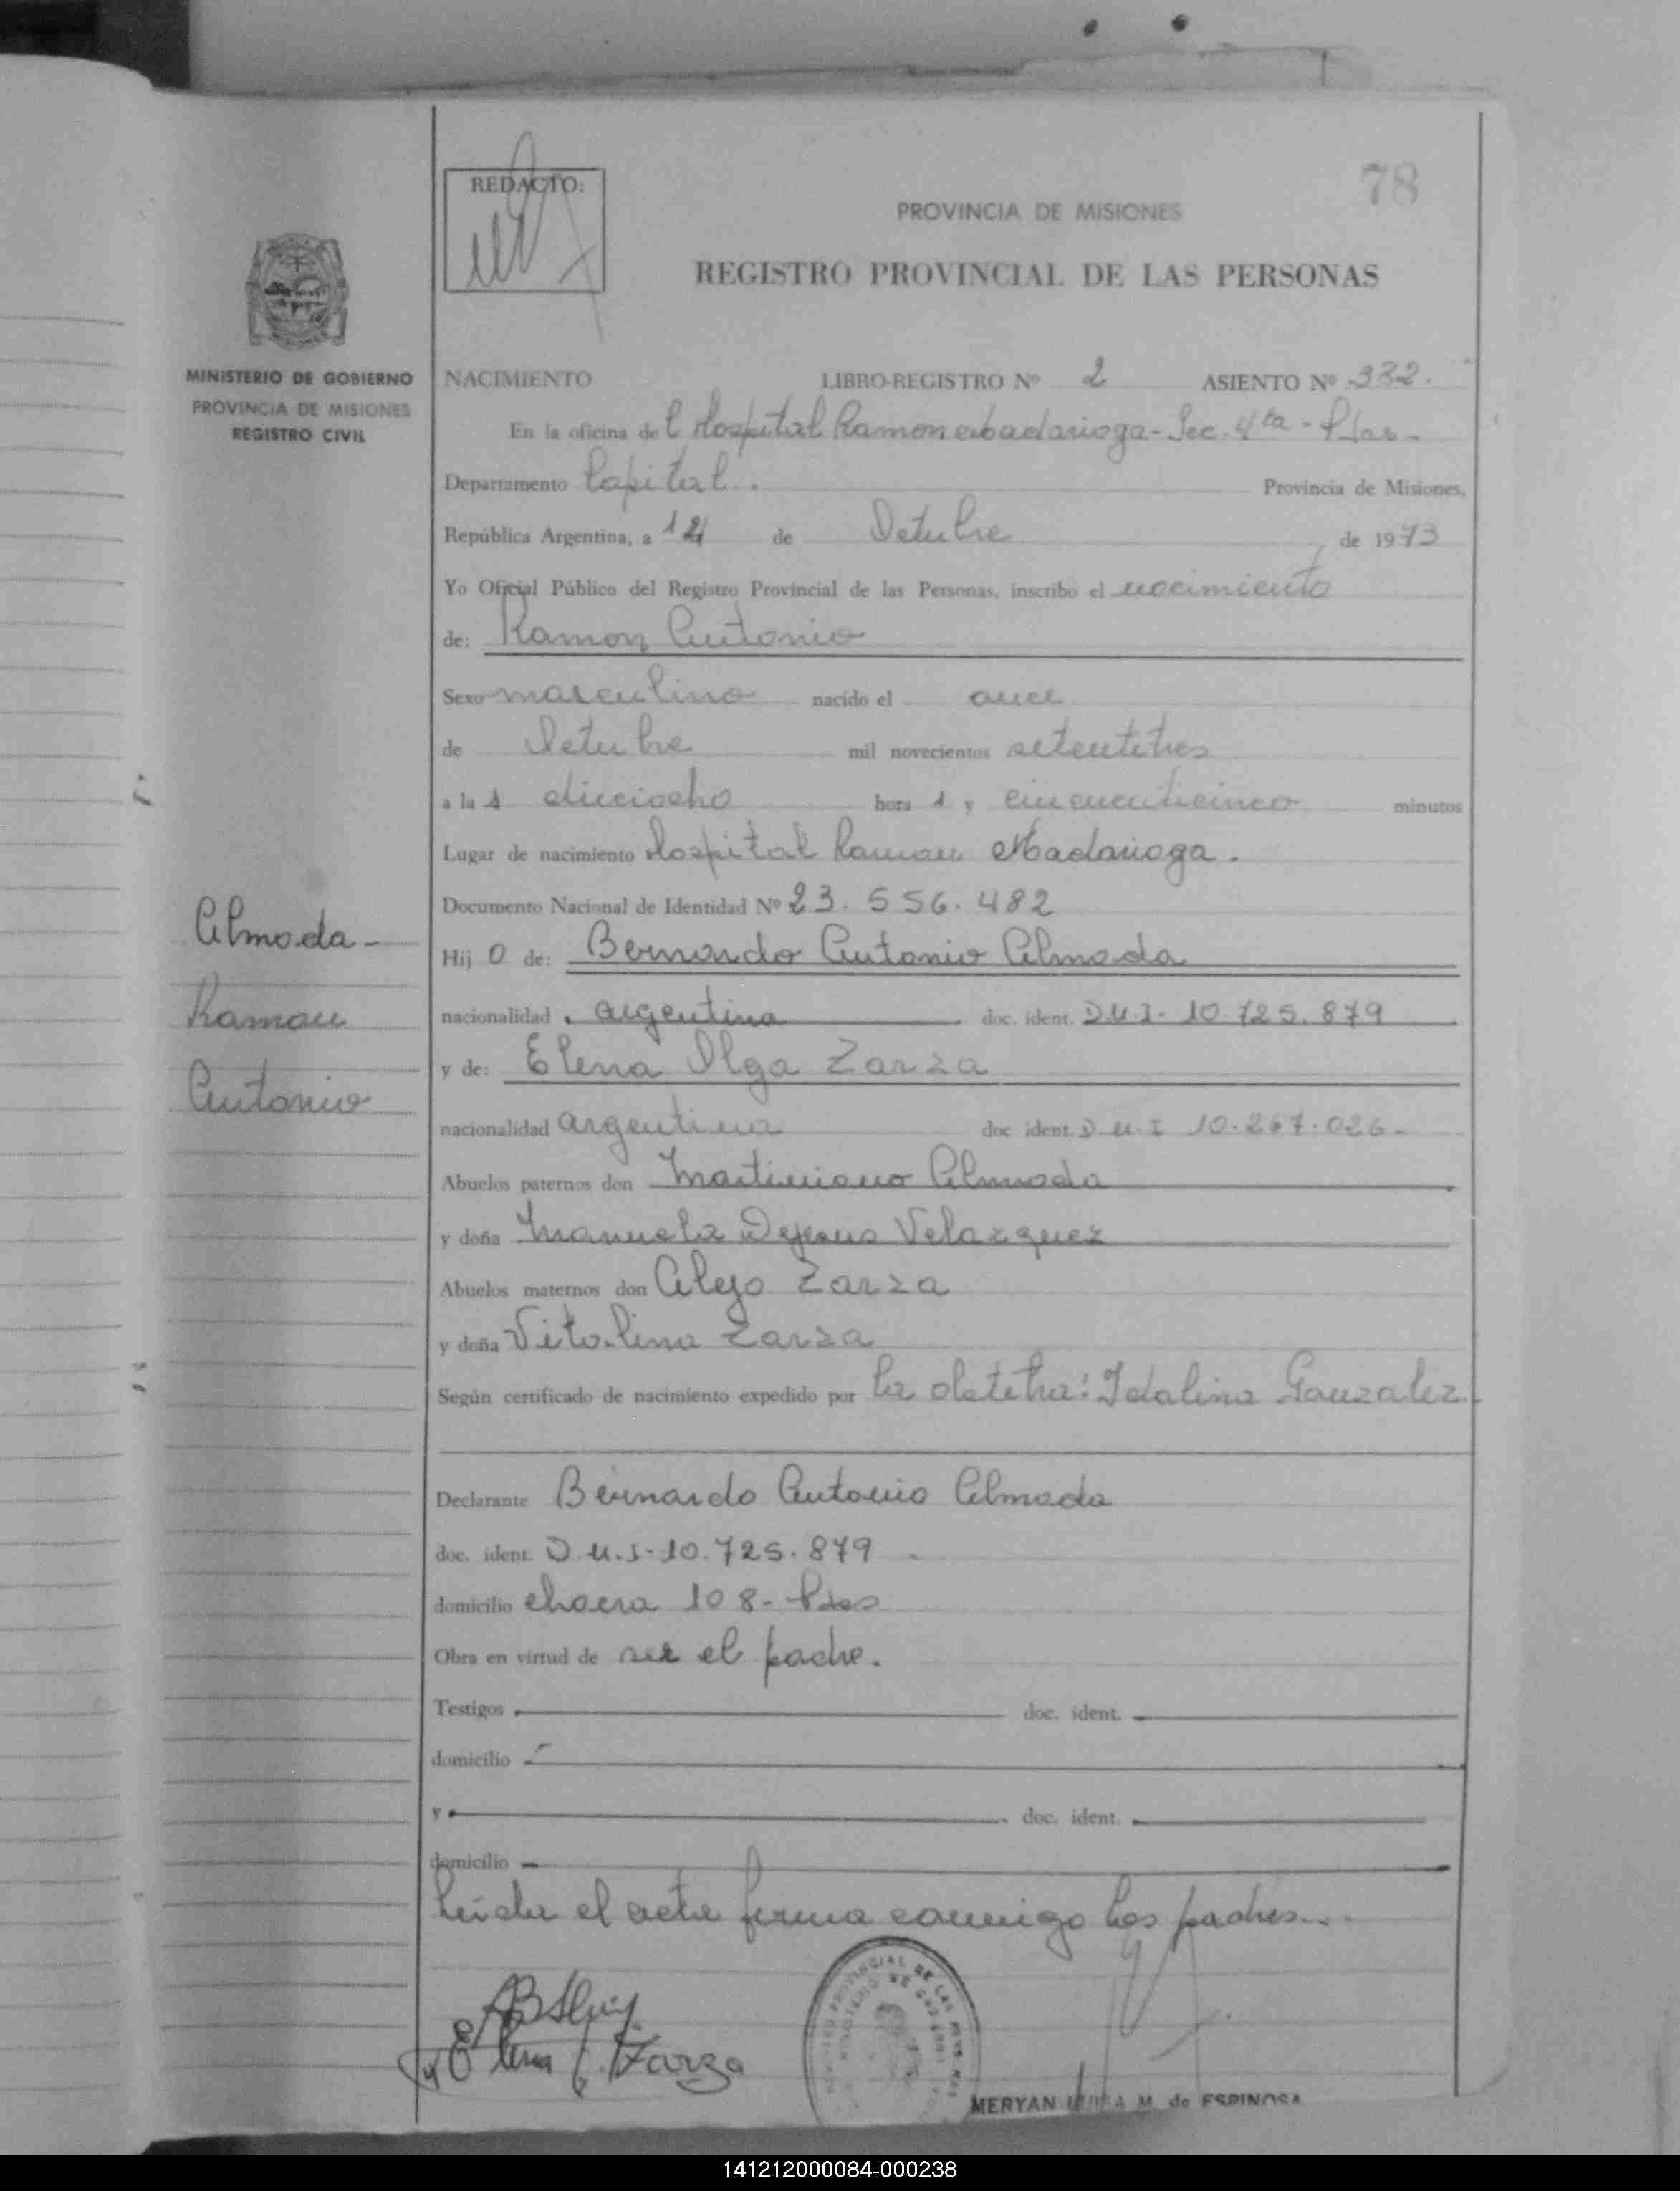 78
REDACTO:
PROVINCIA DE MISIONES
REGISTRO PROVINCIAL DE LAS PERSONAS
MINISTERIO DE GOBIERNO
PROVINCIA DE MISIONES
REGISTRO CIVIL
NACIMIENTO LIBRO-REGISTRO Nº 2 ASIENTO Nº 332.
En la oficina del Hospital Ramon Madariaga - Sec. 4ta - Pdas -
Departamento Capital. Provincia de Misiones,
República Argentina, a 12 de Octubre de 1973
Yo Oficial Público del Registro Provincial de las Personas, inscribo el nacimiento
de: Ramon Antonio
Sexo masculino nacido el once
de Octubre mil novecientos setentitres
a las dieciocho horas y cincuenticinco minutos
Lugar de nacimiento Hospital Ramon Madariaga.
Documento Nacional de Identidad Nº 23.556.482
Almada -
Ramon
Antonio
Hijo de: Bernardo Antonio Almada
nacionalidad argentina doc. ident. D.N.I. 10.725.879
y de: Elena Olga Zarza
nacionalidad argentina doc ident. D.N.I 10.267.026.-
Abuelos paternos don Martiniano Almada
y doña Manuela Dejesus Velazquez
Abuelos maternos don Alejo Zarza
y doña Vitalina Zarza
Según certificado de nacimiento expedido por la obstetra: Idalina Gonzalez.
Declarante Bernardo Antonio Almada
doc. ident. D.N.I-10.725.879
domicilio chacra 108 - Pdas
Obra en virtud de ser el padre.
Testigos doc. ident.
domicilio
y doc. ident.
domicilio
Leida el acta firma conmigo los padres...
Elena Zarza
MERYAN M. de ESPINOSA
141212000084-000238